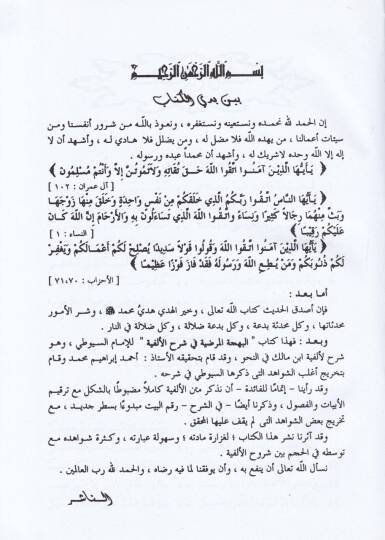 بسم الله الرحمن الرحيم
بين يدي الكتاب
إن الحمد لله نحمده ونستعينه ونستغفره ، ونعوذ بالله من شرور أنفسنا ومن
سيئات أعمالنا ، من يهده الله فلا مضل له ، ومن يضلل فلا هادي له ، وأشهد أن لا
إله إلا الله وحده لاشريك له ، وأشهد أن محمداً عبده ورسوله .
﴿ يَـٰأَيُّهَا الَّذِينَ آمَنُوا اتَّقُوا اللَّهَ حَقَّ تُقَاتِهِ وَلاَتَمُوتُنَّ إِلاَّ وَأَنْتُمْ مُسْلِمُونَ ﴾
[ آل عمران : ١٠٢ ]
﴿ يَـٰأَيُّهَا النَّاسُ اتَّقُوا رَبَّكُمُ الَّذِي خَلَقَكُمْ مِنْ نَفْسٍ وَاحِدَةٍ وَخَلَقَ مِنْهَا زَوْجَهَا
وَبَثَّ مِنْهُمَا رِجَالاً كَثِيرًا وَنِسَاءً وَاتَّقُوا اللَّهَ الَّذِي تَسَاءَلُونَ بِهِ وَالأَرْحَامَ إِنَّ اللَّهَ كَانَ
عَلَيْكُمْ رَقِيبًا ﴾ [ النساء : ١ ]
﴿ يَـٰأَيُّهَا الَّذِينَ آمَنُوا اتَّقُوا اللَّهَ وَقُولُوا قَوْلاً سَدِيدًا يُصْلِحْ لَكُمْ أَعْمَالَكُمْ وَيَغْفِرْ
لَكُمْ ذُنُوبَكُمْ وَمَنْ يُطِعِ اللَّهَ وَرَسُولَهُ فَقَدْ فَازَ فَوْزًا عَظِيمًا ﴾
[ الأحزاب : ٧١،٧٠ ]
أما بعد :
فإن أصدق الحديث كتاب الله تعالى ، وخير الهدي هديُ محمد ﷺ ، وشر الأمور
محدثاتها ، وكل محدثة بدعة ، وكل بدعة ضلالة ، وكل ضلالة في النار .
وبعد : فهذا كتاب " البهجة المرضية في شرح الألفية " للإمام السيوطي ، وهو
شرح لألفية ابن مالك في النحو ، وقد قام بتحقيقه الأستاذ : أحمد إبراهيم محمد وقام
بتخريج أغلب الشواهد التى ذكرها السيوطي في شرحه .
وقد رأينا - إتمامًا للفائدة - أن نذكر متن الألفية كاملاً مضبوطًا بالشكل مع ترقيم
الأبيات والفصول ، وذكرنا أيضًا - في الشرح - رقم البيت مبدوءًا بسطر جديد ، مع
تخريج بعض الشواهد التى لم يقف عليها المحقق .
وقد آثرنا نشر هذا الكتاب ؛ لغزارة مادته ؛ وسهولة عبارته ، وكثرة شواهده مع
توسطه في الحجم بين شروح الألفية .
نسأل الله تعالى أن ينفع به ، وأن يوفقنا لما فيه رضاه ، والحمد لله رب العالمين .
الناشر